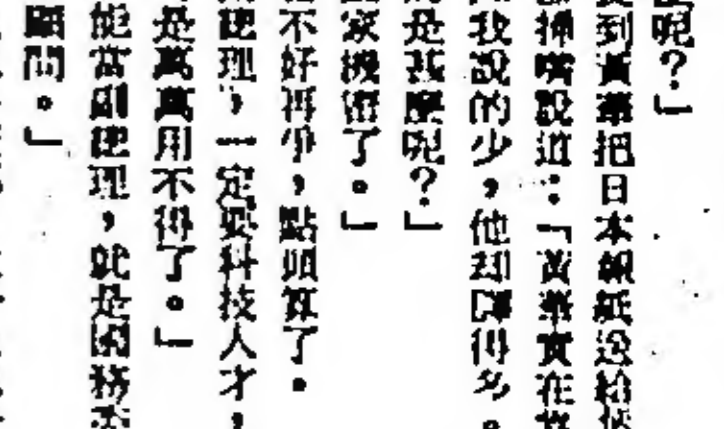 呢？」
到黃華把日本報紙送給
插嘴說道：「黃華實在
我說的少，他却譯得多。
是甚麼呢？」
家機密了。」
不好再爭，點頭算了。
總理，一定要科技人才，
是萬萬用不得了。」
能當副總理，就是國務委
顧問。」